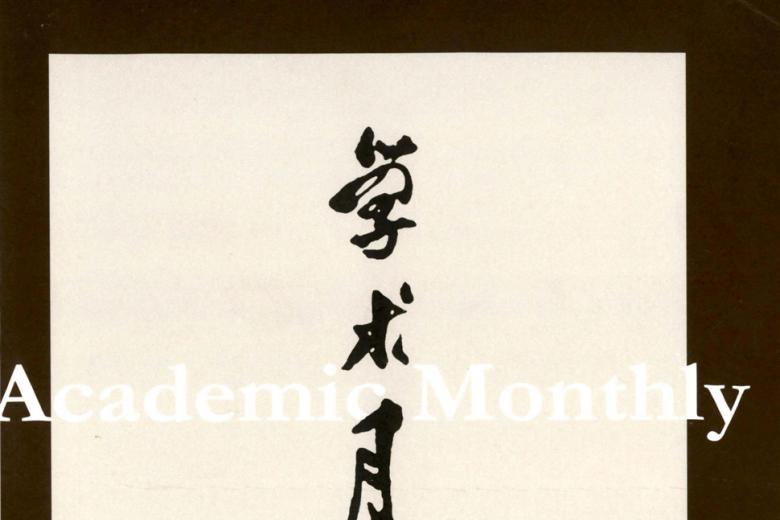 学
术
月
Academic Monthly